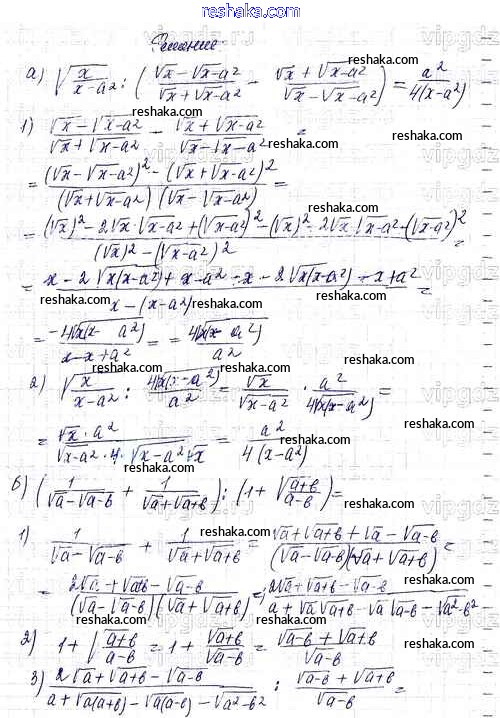 reshaka.com
Решение
а) √(x/(x-a²)) : ((√x - √(x-a²))/(√x + √(x-a²)) - (√x + √(x-a²))/(√x - √(x-a²))) = a²/(4(x-a²))
1) (√x - √(x-a²))/(√x + √(x-a²)) - (√x + √(x-a²))/(√x - √(x-a²)) =
= ((√x - √(x-a²))² - (√x + √(x-a²))²)/((√x + √(x-a²))(√x - √(x-a²))) =
= ((√x)² - 2√x·√(x-a²) + (√(x-a²))² - (√x)² - 2√x·√(x-a²) - (√(x-a²))²)/((√x)² - (√(x-a²))²) =
= (x - 2√(x(x-a²)) + x - a² - x - 2√(x(x-a²)) - x + a²)/(x - (x-a²)) =
= (-4√(x(x-a²)))/(x-x+a²) = = (4√(x(x-a²)))/a²
2) √(x/(x-a²)) : (4√(x(x-a²)))/a² = √x/√(x-a²) · a²/(4√(x(x-a²))) =
= (√x · a²)/(√(x-a²) · 4 · √(x-a²) √x) = a²/(4(x-a²))
б) (1/(√a - √(a-b)) + 1/(√a + √(a+b))) : (1 + √((a+b)/(a-b))) =
1) 1/(√a - √(a-b)) + 1/(√a + √(a+b)) = (√a + √(a+b) + √a - √(a-b))/((√a - √(a-b))(√a + √(a+b))) =
= (2√a + √(a+b) - √(a-b))/((√a - √(a-b))(√a + √(a+b))) = (2√a + √(a+b) - √(a-b))/(a + √a √(a+b) - √a √(a-b) - √(a²-b²))
2) 1 + √((a+b)/(a-b)) = 1 + √(a+b)/√(a-b) = (√(a-b) + √(a+b))/√(a-b)
3) (2√a + √(a+b) - √(a-b))/(a + √(a(a+b)) - √(a(a-b)) - √(a²-b²)) : (√(a-b) + √(a+b))/√(a-b) =